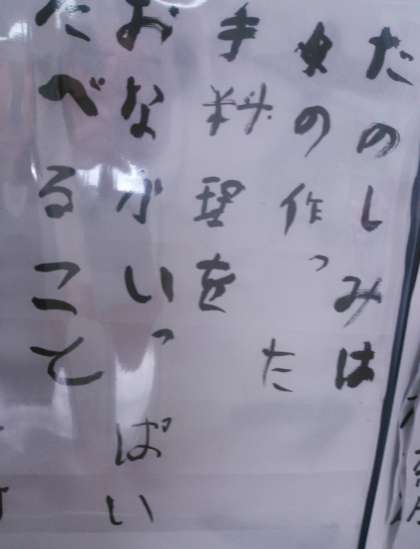 たのしみは
女の作った
手料理を
おなかいっぱい
たべること